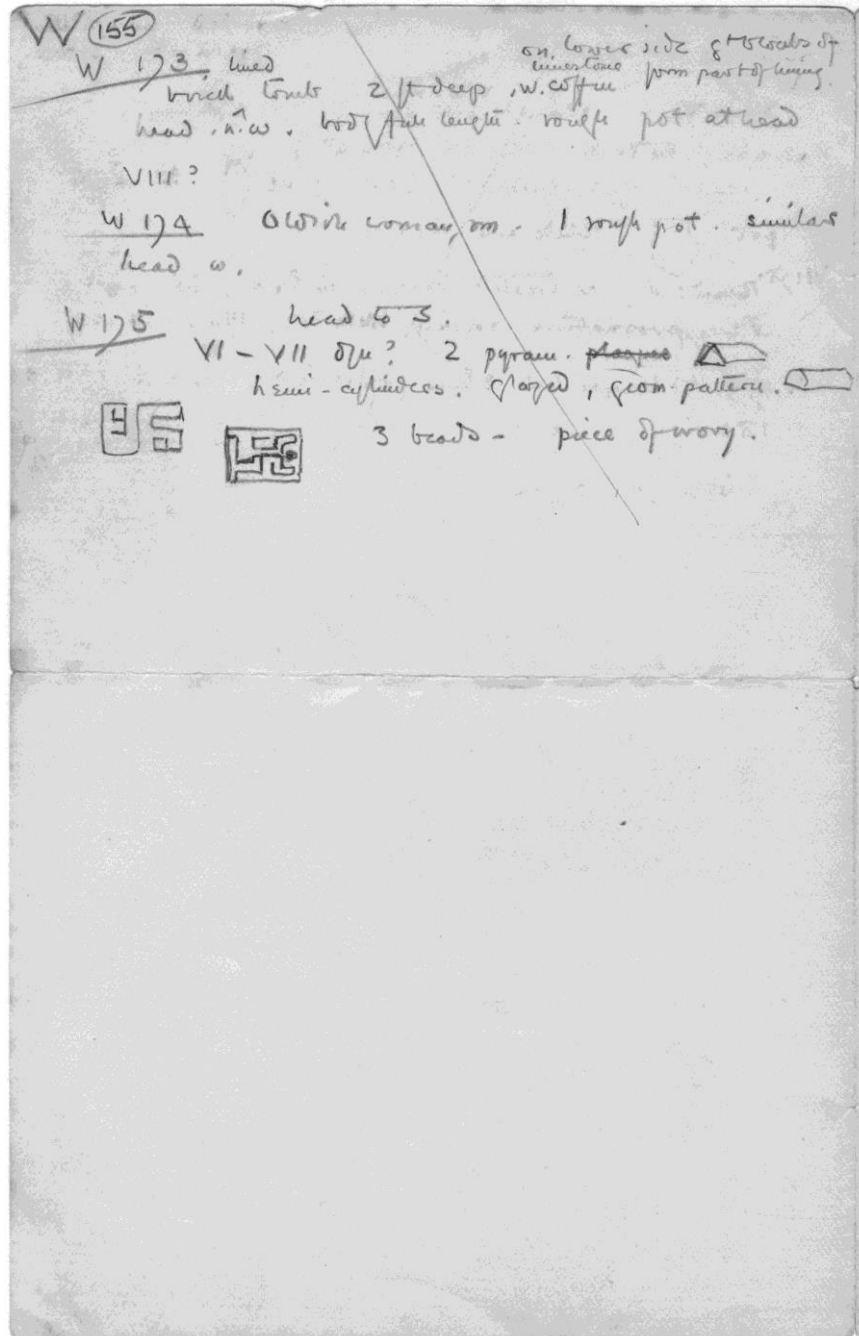 W 155
W 173. lined on lower side gt blocks of
limestone form part of lining.
brick tomb 2 ft deep, w. coffin
head n.w. body full length. rough pot at head
VIII?
W 174 Oldish woman, 1 rough pot. similar
head w.
W 175 head to S.
VI - VII dyn? 2 pyram.
hemi-cylinders. glazed, geom. pattern.
3 beads - piece of ivory.